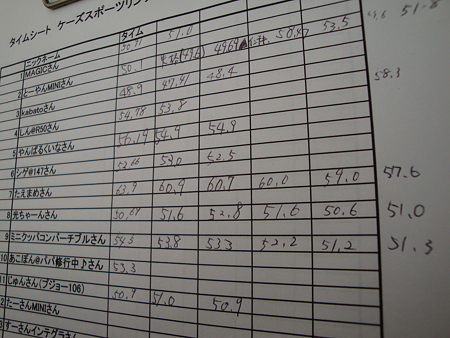 タイムシート ケーズスポーツリンク
ニックネーム タイム
1 MAGICさん 50.11 51.0
2 とーやんMINIさん 50.1 49.69 50.47 53.5
3 kabatoさん 48.9 47.91 48.4
4 しん@R50さん 54.78 53.8
5 やんばるくいなさん 50.19 54.9 54.9
6 シゲ@147さん 52.66 53.0 52.5
7 たえまめさん 63.9 60.9 60.7 60.0 59.0 57.6
8 光ちゃーんさん 50.67 51.6 52.8 51.6 50.6 51.0
9 ミニクッパコンバーチブルさん 54.5 53.8 53.3 52.2 51.2 51.3
10 あこぽん@パパ修行中♪さん 53.3
11 じゅんさん(プジョー106) 50.9 51.0 50.9
2 たーさんMINIさん
3 すーさんインテグラさん
51.8
58.3